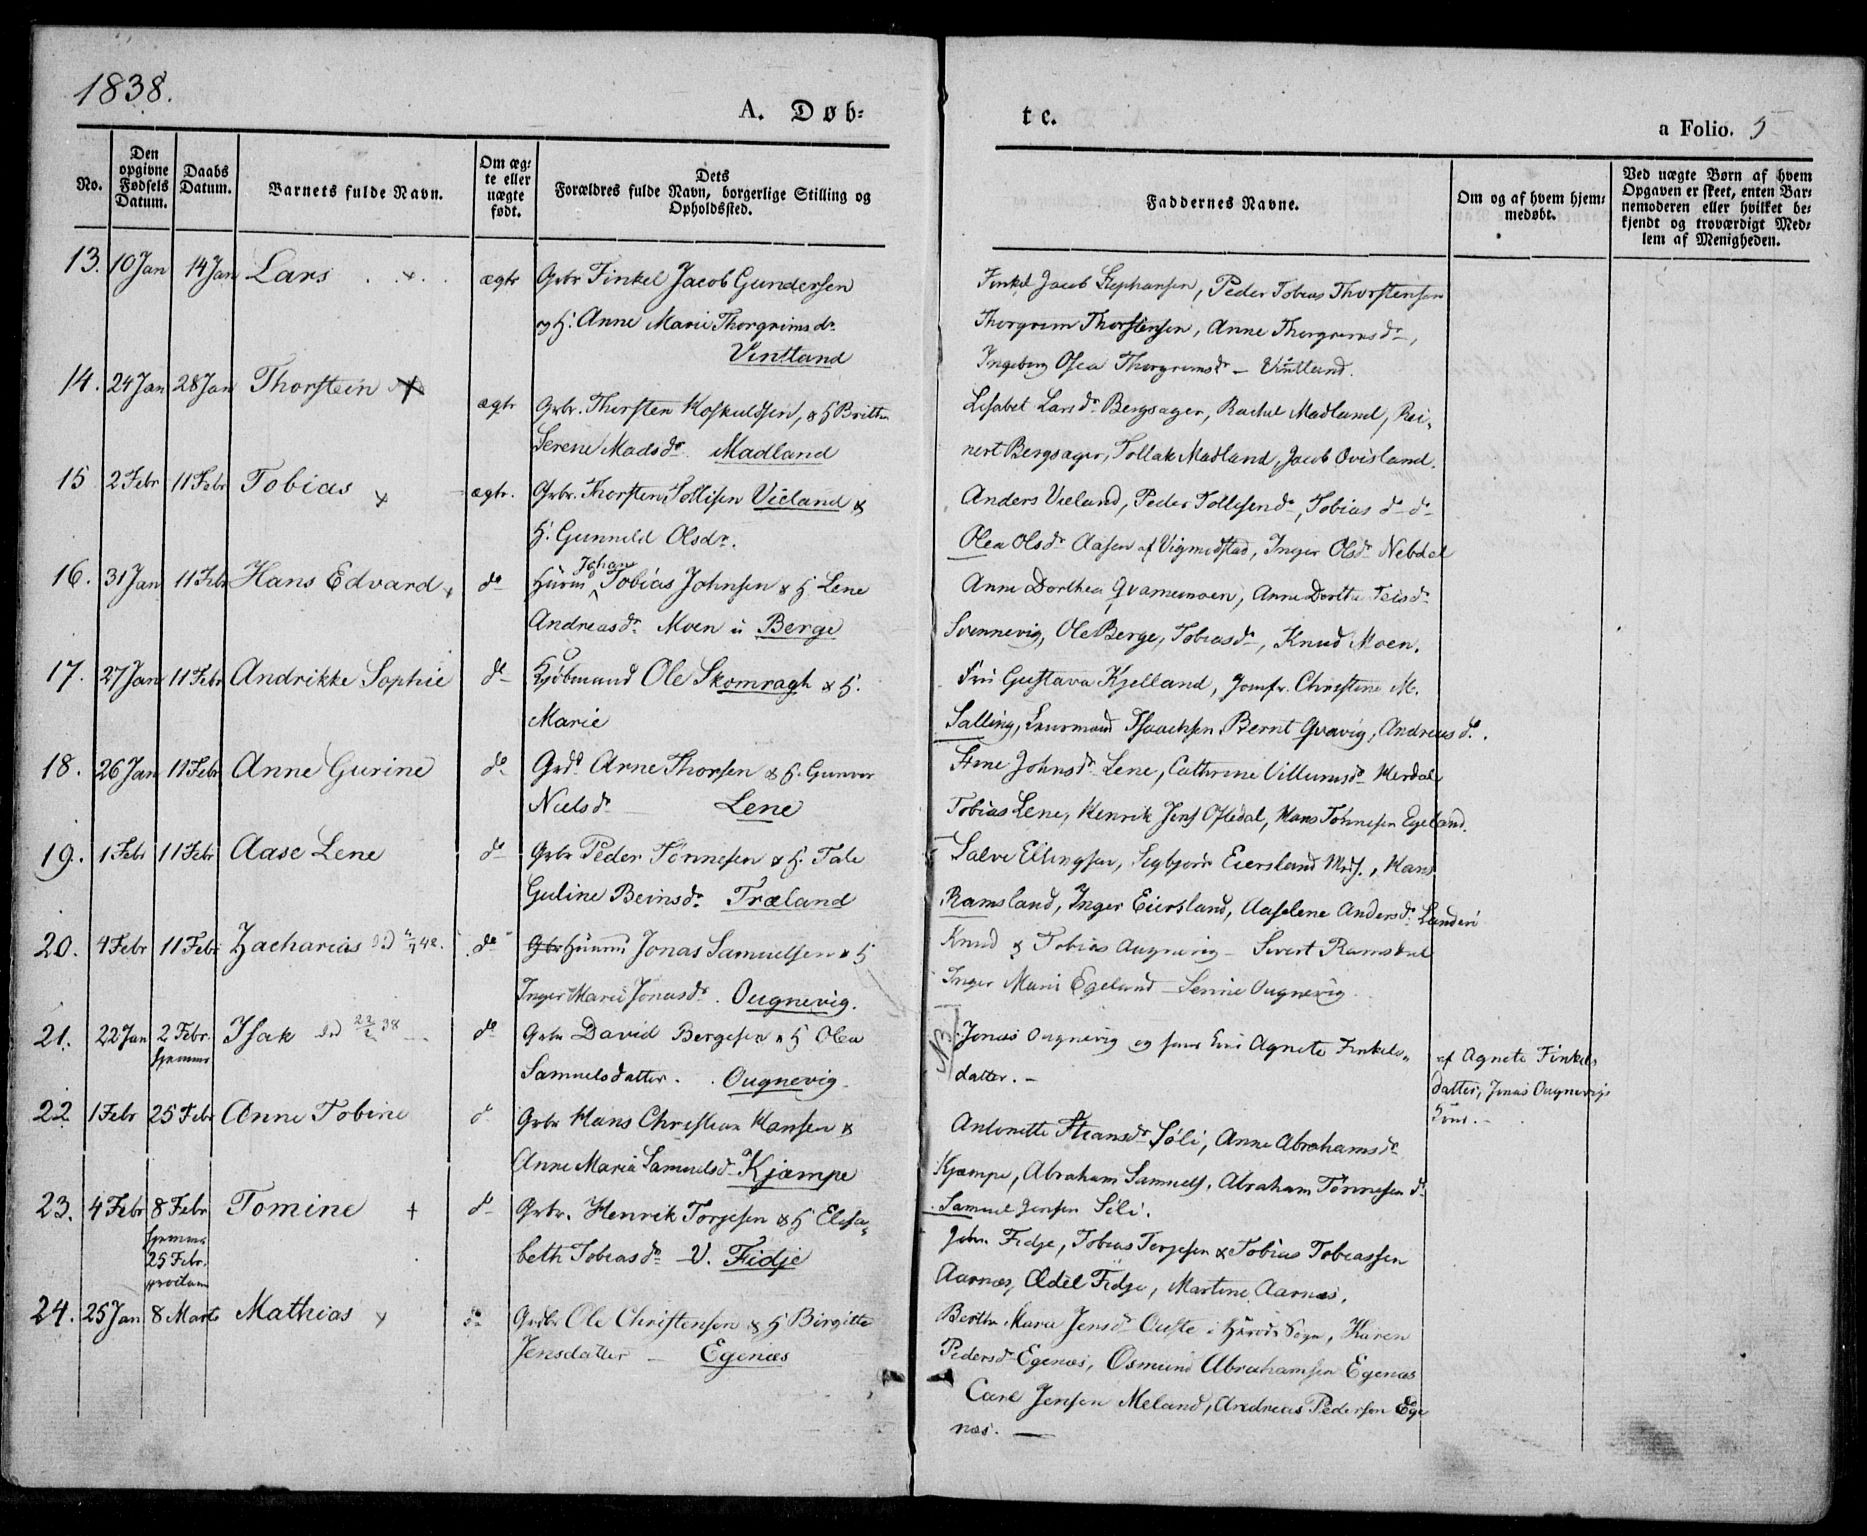 1838.
A. Døb=
te.
a Folio. 5
No.
Den
opgivne
Fødsels
Datum.
Daabs
Datum.
Barnets fulde Navn.
Om æg=
te eller
uægte
født.
Dets
Forældres fulde Navn, borgerlige Stilling og
Opholdssted.
Faddernes Navne.
Om og af hvem hjem=
medøbt.
Ved uægte Børn af hvem
Opgaven er skeet, enten Bar=
nemoderen eller hvilket be=
kjendt og troværdigt Med=
lem af Menigheden.
13. 10 Jan 14 Jan Lars . + . . ægte Grbr Finkel Jacob Gundersen
og H. Anne Marie Thorgrims dr.
Vintland
Finkel Jacob Stephansen, Peder Tobias Thorstensen
Thorgrim Thorstensen, Anne Thorgrims dr,
Ingeborg Osea Thorgrims dr - Vintland.
14. 24 Jan 28 Jan Thorstein + ægte Grbr. Thorsten Hoskuldsen, & H Britha
Serene Mads dr. Madland
Lisabet Lars dr Bergsager, Rachel Madland, Rei-
nert Bergsager, Tollak Madland, Jacob Ovisland.
15 2 Febr 11 Febr Tobias + ægte. Grbr. Thorsten Tollisen Vieland &
H. Gunnild Olsdr.
Anders Vieland, Peder Tollisen do, Tobias do do
Olea Ols dr Aasen af Vigmostad, Inger Ols dr Nebdal
16. 31 Jan 11 Febr Hans Edvard + do Huusm Johan Tobias Johnsen & H. Lene
Andreas dr. Moen u Berge
Anne Dorthea Qvamemoen, Anne Dorthe Teis dr
Svennevig, Ole Berge, Tobias do, Knud Moen.
17. 27 Jan 11 Febr Andrikke Sophie do Kjøbmand Ole Skomragh & H.
Marie
Fru Gustava Kjelland, Jomfr. Christine M.
Salling, Isaachsen, Bernt Qvavig, Andreas do.
18. 26 Jan 11 Febr Anne Gurine do Grdbr Arne Thorsen & H. Gunvor
Niels dr Lene
Stine Johns dr Lene, Cathrine Villums dr Herdal
Tobias Lene, Henrik Jens Oftedal, Hans Tønnesen Egeland.
19. 1 Febr 11 Febr Aase Lene do Grbr Peder Tønnesen & H. Tale
Guline Beins dr. Træland
Salve Ellingsen, Segbjørn Eiersland Mds., Hans
Ramsland, Inger Eiersland, Aaselene Anders dr. Landeri
20. 4 Febr 11 Febr Zacharias død 42. do Grbr Huusm Jonas Samuelsen & H
Inger Marie Jonas dr. Ougnevig.
Knud & Tobias Augnevig - Sivert Ramsdal
Inger Marie Egeland - Serine Ougnevig
21. 22 Jan 2 Febr. Isak død 22/2 38 do Grbr David Bergesen & H Olea
hjemme
Samuelsdatter. . Ougnevig.
NB
Jonas Ougnevig og hans Kone Agnete Finkels-
datter. -
af Agnete Finkels-
datter, Jonas Ougnevigs
Kone. -
22 1 Febr 25 Febr Anne Tobine do Grbr Hans Christian Hansen &
Anne Maria Samuels dr Kjæmpe
Antonette Hans dr Søli, Anne Abrahams dr
Kjæmpe, Abraham Samuels. Abraham Tønnesen do
Samuel Jensen Søli.
23. 4 Febr 8 Febr Tomine + do Grbr. Henrik Torjesen & H Elisa-
hjemme
25 Febr.
beth Tobias dr V. Fidje
John Fidje, Tobias Torjesen & Tobias Tobiassen
Aarnæs, Ædel Fidje, Martine Aarnæs.
24. 25 Jan 8 Marts Mathias + do Grdbr Ole Christensen & H Birgitte
Jensdatter - Egenæs
Berthe Maria Jens dr Ouste i Herods Sogn, Karen
Peders dr Egenæs, Osmund Abrahamsen Egenæs
Carl Jensen Meland, Andreas Pedersen Ege
næs. -